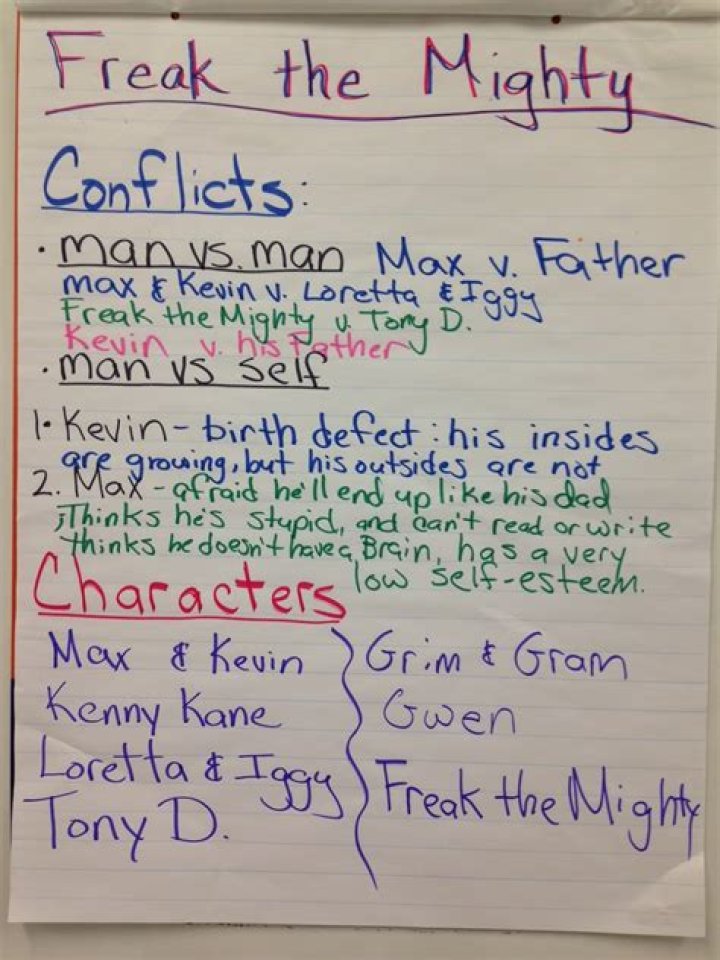 Freak the Mighty
Conflicts:
· man vs. man Max v. Father
max & Kevin v. Loretta & Iggy
Freak the Mighty v. Tony D.
Kevin v. his Father
· man vs self
1. Kevin - birth defect: his insides
are growing, but his outsides are not
2. Max - afraid he'll end up like his dad
; Thinks he's stupid, and can't read or write
thinks he doesn't have a Brain, has a very
low self-esteem.
Characters
Max & Kevin
Kenny Kane
Loretta & Iggy
Tony D.
Grim & Gram
Gwen
Freak the Mighty